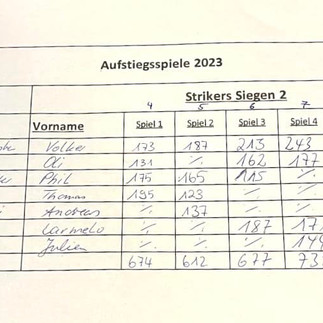 Aufstiegsspiele 2023
Strikers Siegen 2
4 5 6 7
Vorname Spiel 1 Spiel 2 Spiel 3 Spiel 4
Volker 173 187 213 243
Oli 131 ∕. 162 177
Phil 175 165 115 ∕.
Thomas 195 123 ∕. ∕.
Andreas ∕. 137 ∕.
Carmelo ∕. ∕. 187 17
Julien ∕. ∕. ∕. 14
674 612 677 73